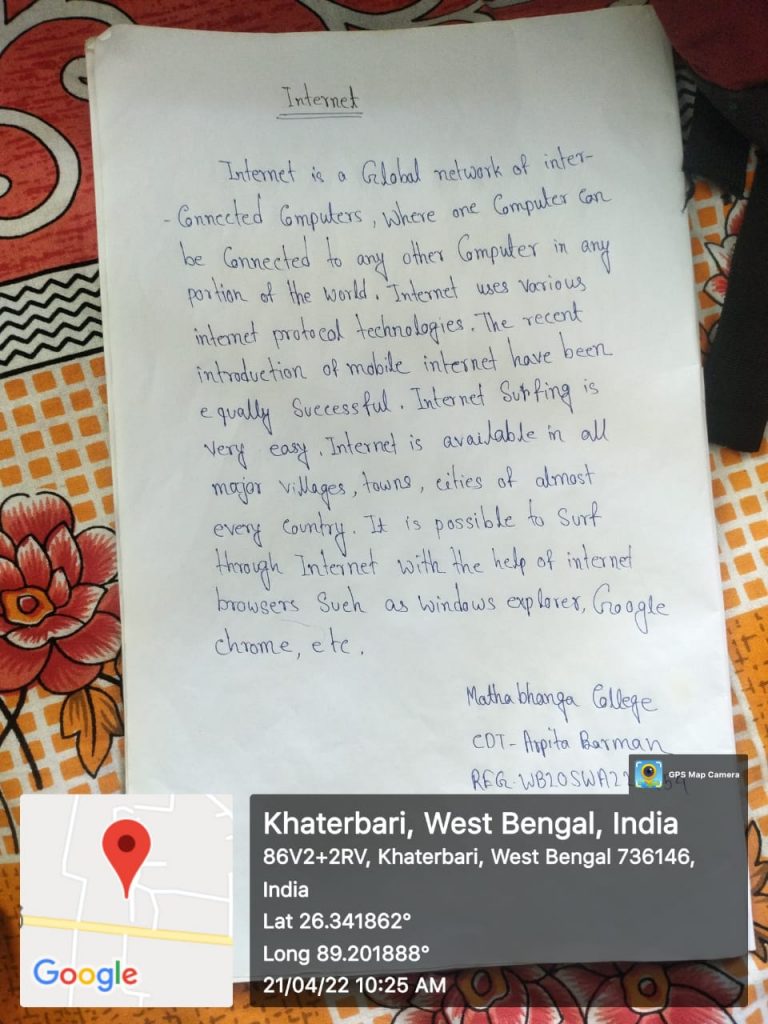 Internet
Internet is a Global network of inter-
- Connected Computers, Where one Computer Can
be Connected to any other Computer in any
portion of the world. Internet uses various
internet protocol technologies. The recent
introduction of mobile internet have been
equally Successful. Internet Surfing is
very easy. Internet is available in all
major villages, towns, cities of almost
every Country. It is possible to Surf
through Internet with the help of internet
browsers Such as windows explorer, Google
chrome, etc.
Mathabhanga College
CDT- Arpita Barman
REG-WB20SWA22
GPS Map Camera
Khaterbari, West Bengal, India
86V2+2RV, Khaterbari, West Bengal 736146,
India
Lat 26.341862°
Long 89.201888°
21/04/22 10:25 AM
Google